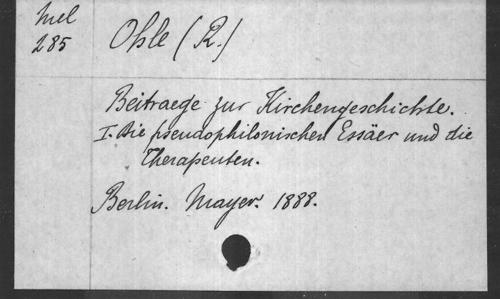 Mel
285
Ohle (R.)
Beitraege zur Kirchengeschichte.
I. Die pseudophilonischen Essäer und die
Therapeuten.
Berlin. Mayer. 1888.